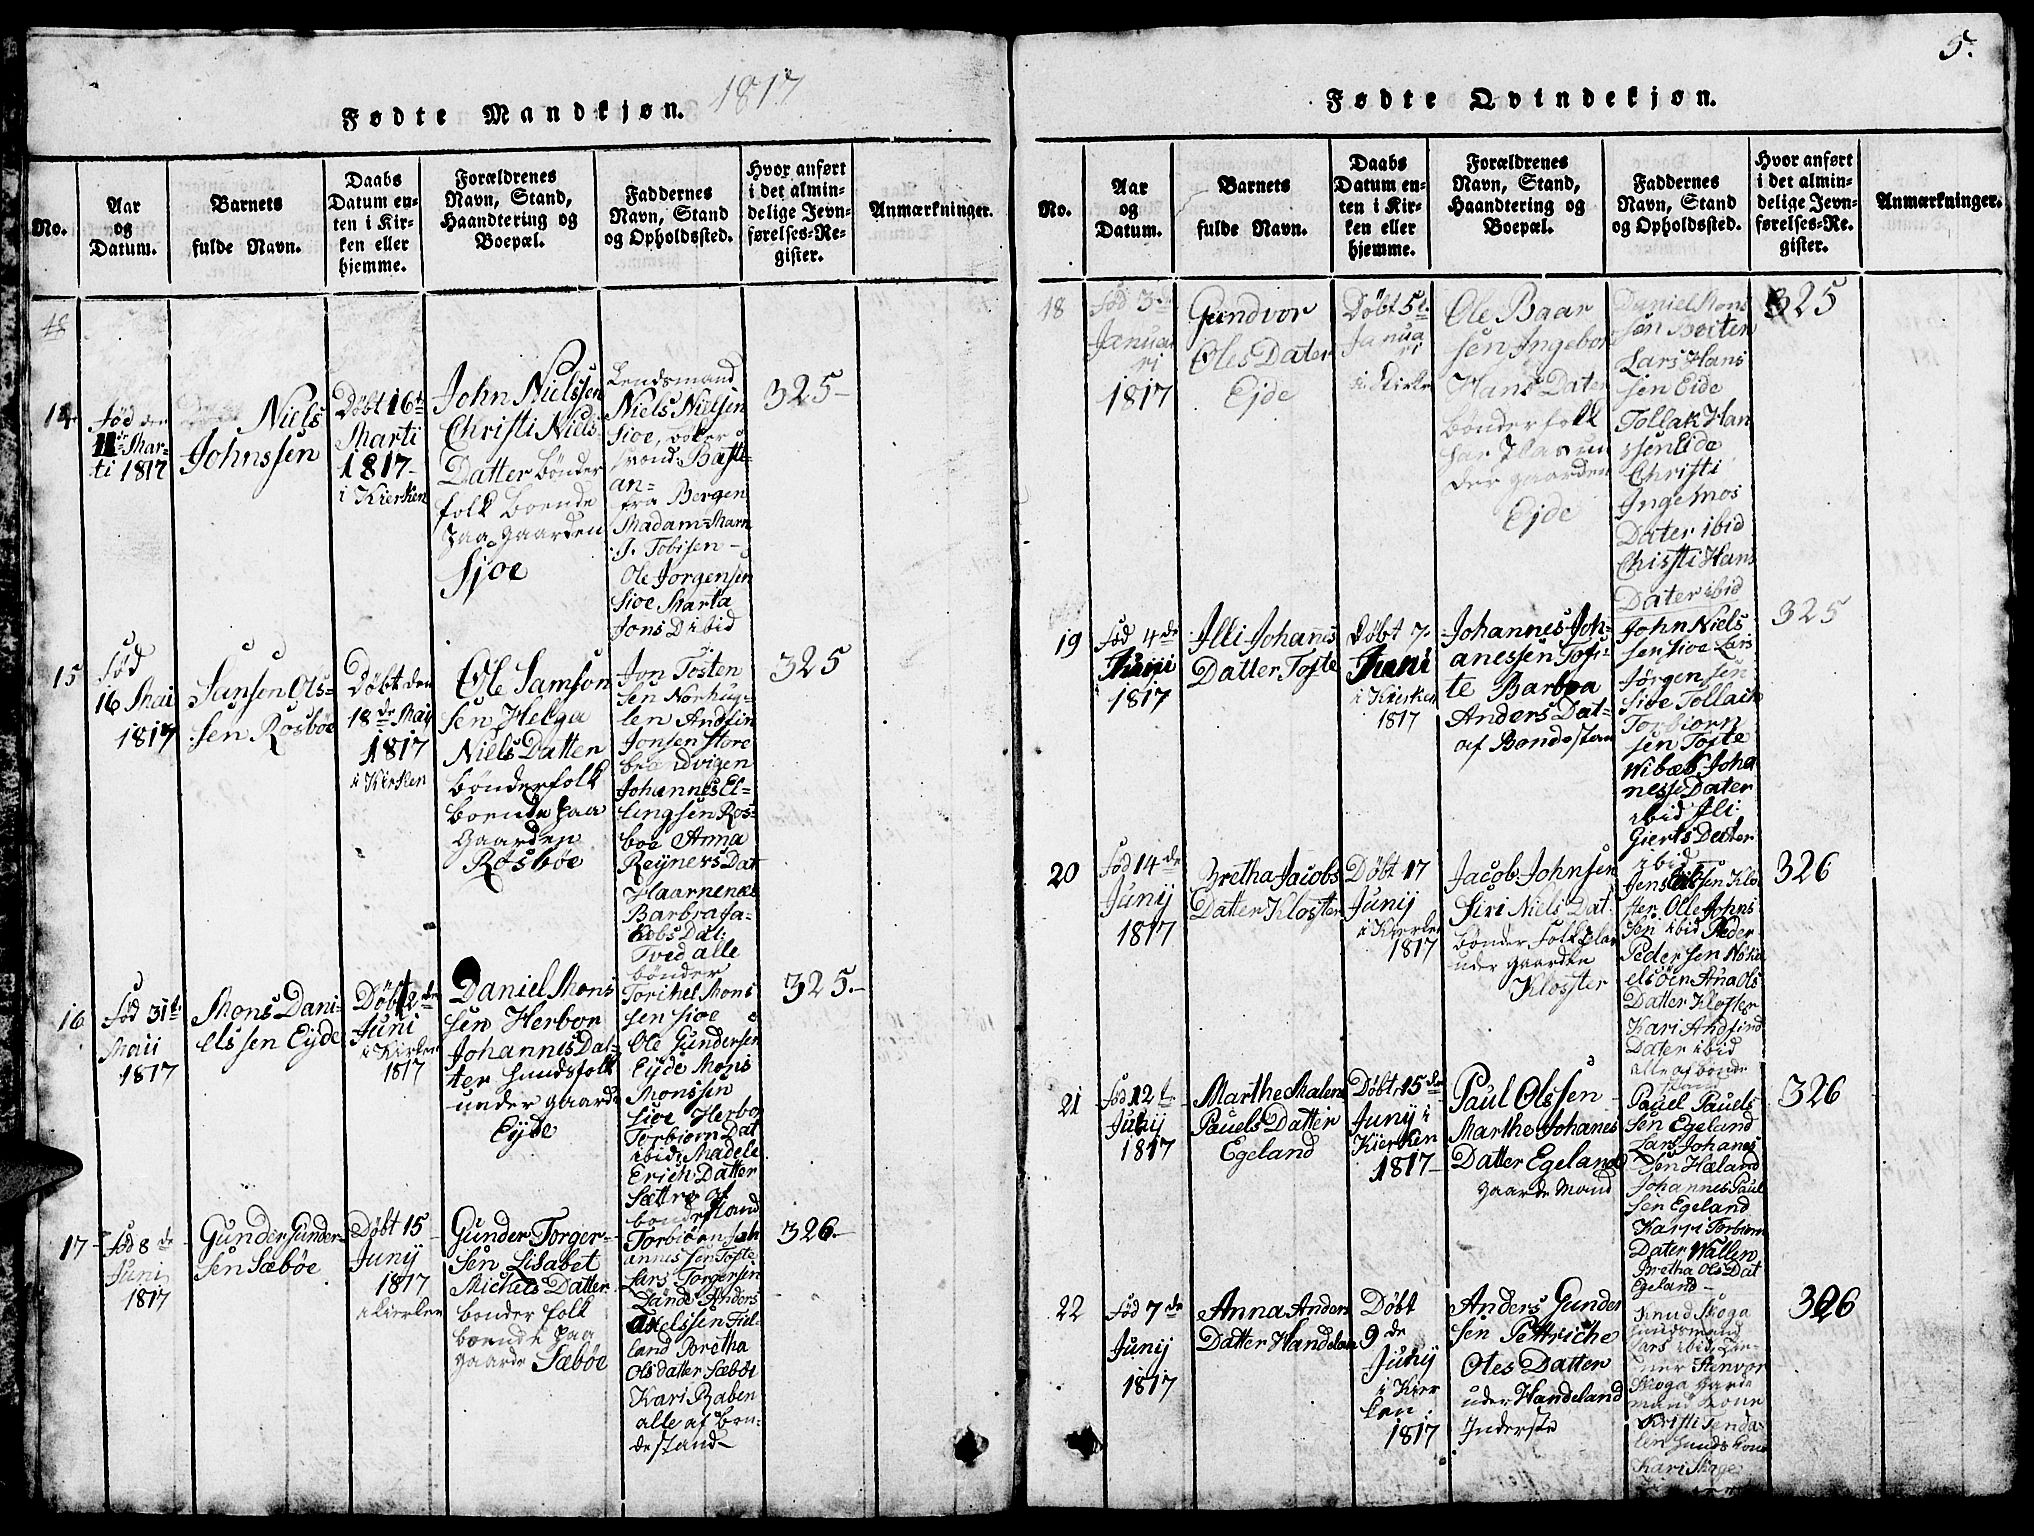 1817
Fødte Mandkjøn.
No.
Aar
og
Datum.
Barnets
fulde Navn.
Daabs
Datum en-
ten i Kir-
ken eller
hjemme.
Forældrenes
Navn, Stand,
Haandtering og
Boepæl.
Faddernes
Navn, Stand
og Opholdssted.
Hvor anført
i det almin-
delige Jevn-
førelses-Re-
gister.
Anmærkninger.
14
Fød den
11te Mar-
ti 1817
Niels
Johnssen
Døbt 16te
Marti
1817-
i Kierken
John Nielssen
Christi Niels-
Datter Bønder
folk Boende
paa Gaarden
Sjoe
Lendsmand
Niels Nielsen
Sioe,
svend Bastle-
an-
fra Bergen
Madam Marn
J. Tobisen -
Ole Jorgensen
Sioe Marta
Jons D ibid
325-
15
Fød
16 Mai
1817
Samsen Ols-
sen Røsbøe
Døbt den
18de Maij
1817
i Kirken
Ole Samson
sen Helga
Niels Datter
Bønderfolk
boende paa
Gaarden
Røsbøe
Jon Tosten
sen Norhug-
len Andfin
Jonsen Store
brandvigen
Johannes El-
lingsen Ros-
boe Anna
Reijners Dat
Haarnenæs
Barbra Ja-
kobs Dat.
Tved alle
bønder
325
16
Fød 31te
Maii
1817
Mons Dani-
elssen Eyde
Døbt 2den
Juni
i Kirken
1817
Daniel Mons
sen Herbor
Johannes Dat-
ter Huusfolk
under gaard
Eyde
Torikel Mons
sen Sioe
Ole Gundersen
Eyde Mons
Monssen
Sioe Herbor
Torbiorn Dat
ibid Madele
Erich Datter
Sættre af
bondestand
325.-
17
Fød 8de
Juni
1817
Gunder Gunder-
sen Sæbøe
Døbt 15
Junij
1817
i Kirken
Gunder Torger-
sen Lisabet
Michels Datter
bønder folk
boende paa
gaarde Sæbøe
Torbiorn Joh
annissen Tofte
Lars Torgersen
Lande Anders
Axelssen Fiel-
land Bretha
Olsdatter Sæbøe
Kari Raben
alle af bon-
destand-
326.-
5.
Fødte Qvindekjøn.
No.
Aar
og
Datum.
Barnets
fulde Navn.
Daabs
Datum en-
ten i Kir-
ken eller
hjemme.
Forældrenes
Navn, Stand,
Haandtering og
Boepæl.
Faddernes
Navn, Stand
og Opholdssted.
Hvor anført
i det almin-
delige Jevn-
førelses-Re-
gister.
Anmærkninger.
18
Fød 3de
Janua
ri
1817
Gundvor
Oles Dater
Ejde
Døbt 5te
Janua
ri
i Kirke
Ole Baar
sen Ingebor
Hans Dater
Bønderfolk
har Plas un
der gaarden
Ejde
Daniel Mons
sen
Lars Hans
sen Eide
Tollak Han
ssen Eide
Christi
Ingemos
Dater ibid
Christi Hans
Dater ibid
325
19
Fød 4de
Juni
1817
Illi Johanis
Datter Tofte
Døbt 7.
Juni
i Kirken
1817
Johannes Joh-
anessen Tof-
te Barbra
Anders Dat-
af Bondestan
John Niels
sen Sioe Lars
Jørgensen
Sioe Tollach
Torbiorn
sen Tofte
Wibæk Joha
nesse Dater
ibid Ili
Gierts Datter
ibid
325
20
Fød 14de
Junij
1817
Bretha Jacobs
Datter Kloster
Døbt 17
Junij
i Kirken
1817
Jacob Johnsen
Siri Niels Dat-
bønder Folk
under gaarden
Kloster
Jens Olssen Klo
ster Olle Johns
sen ibid Peder
Pedersen
Ana Ols
Datter Kloster
Kari Andfind
Dater ibid
alle af bonde
stand
326
21
Fød 12te
Junij
1817
Marthe Malene
Pauels Datter
Egeland
Døbt 15de
Junij i
Kierken
1817-
Paul Olssen
Marthe Johanes
Datter Egeland
gaarde Mand
Pauel Pauels
sen Egeland
Lars Johanes
sen Hæland
Johannes Paul
sen Egeland
Karri Torbiorn
Dater Wallen
Bretha Ols Dat
Egeland -
326
22
Fød 7de
Junij
1817
Anna Anders
Datter Handelan
Døbt
9de
Junij
i Kier
ken
1817
Anders Gunder
sen Pettriche
Oles Datter
under Handeland
Inderste
Knud Skoga
huusmand
Lars ibid
Stenvor
Skoga Garde
mand Kone
Kristi
Kari Skoge
326